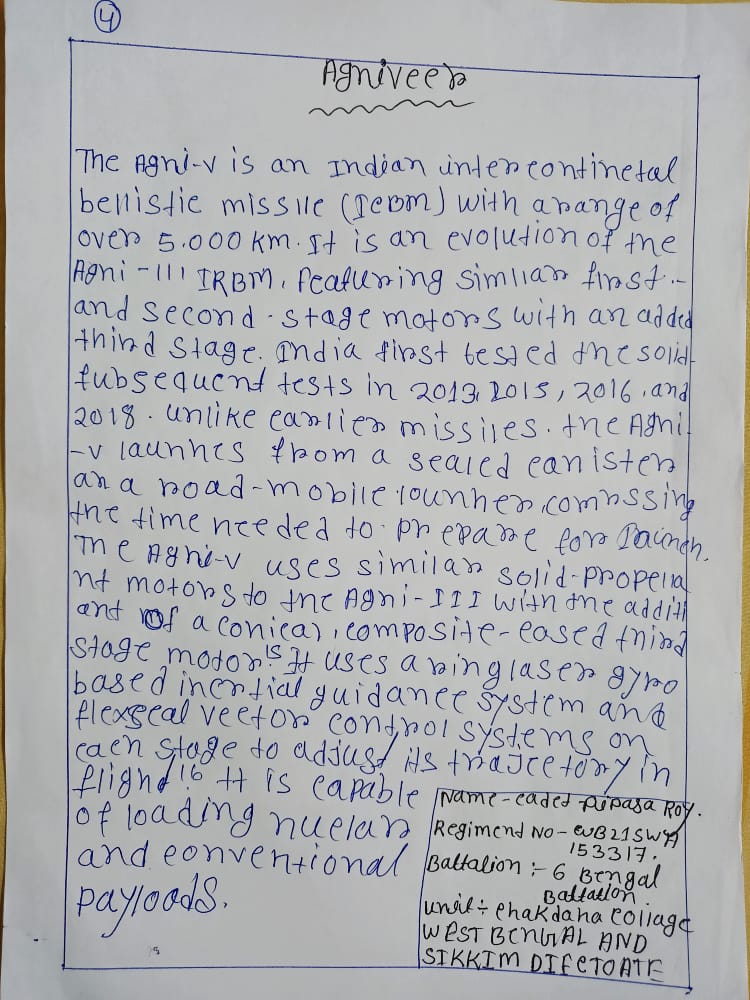 4
Agniveer
The Agni-V is an Indian intercontinetal
bellistic missile (ICBM) with a range of
over 5.000 km. It is an evolution of the
Agni-III IRBM, featuring similar first.-
and second-stage motors with an added
third stage. India first tested the solid-
fubsequent tests in 2013, 2015, 2016, and
2018. unlike earlier missiles. the Agni-
-v launhes from a sealed canister
an a road-mobile lounher, comrssing
the time needed to prepare for Launch.
The Agni-V uses similar solid-propella
nt motors to the Agni-III with the additi
ant of a conical, composite-cased third
stage motor 15 It uses a ring laser gyro
based inertial guidance system and
flexseal vector control systems on
each stage to adjust its trajectory in
flight 16 It is capable
of loading nuclar
and conventional
payloads.
Name-cadet Pipasa Roy.
Regimend No-WB21SWA
153317.
Battalion :- 6 Bengal
Battalion
unit÷ chakdaha collage
WEST BENGAL AND
SIKKIM DIFETOATE